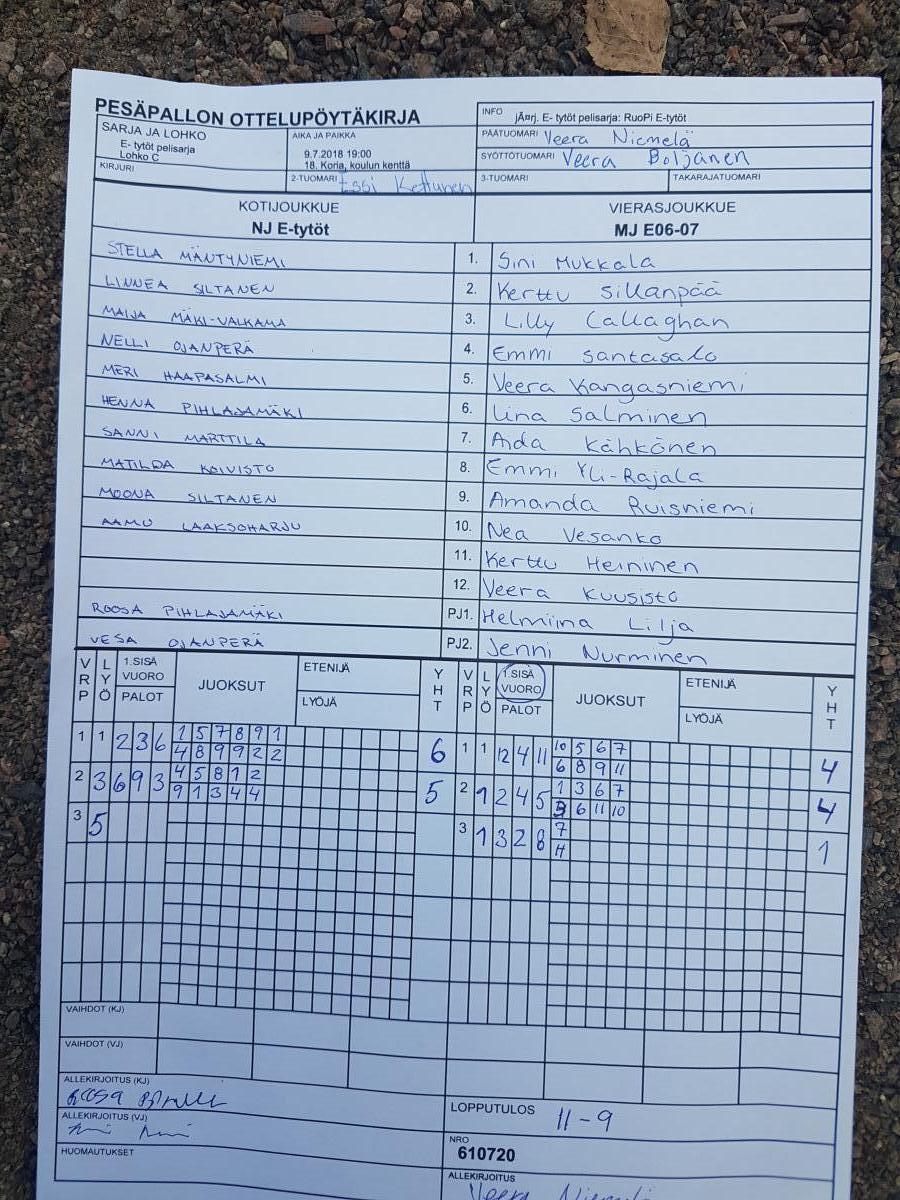 PESÄPALLON OTTELUPÖYTÄKIRJA
INFO jÃ¤rj. E- tytöt pelisarja: RuoPi E-tytöt
SARJA JA LOHKO
E- tytöt pelisarja
Lohko C
AIKA JA PAIKKA
9.7.2018 19:00
18. Koria, koulun kenttä
PÄÄTUOMARI Veera Niemelä
SYÖTTÖTUOMARI Veera Boljanen
KIRJURI
2-TUOMARI Essi Kettunen
3-TUOMARI
TAKARAJATUOMARI
KOTIJOUKKUE
NJ E-tytöt
VIERASJOUKKUE
MJ E06-07
STELLA MÄNTYNIEMI 1. Sini Mukkala
LINNEA SILTANEN 2. Kerttu Sillanpää
MAIJA MÄKI-VALKAMA 3. Lilly Callaghan
NELLI OJANPERÄ 4. Emmi Santasalo
MERI HAAPASALMI 5. Veera Kangasniemi
HENNA PIHLAJAMÄKI 6. Iina Salminen
SANNI MARTTILA 7. Aida Kähkönen
MATILDA KOIVISTO 8. Emmi Yli-Rajala
MOONA SILTANEN 9. Amanda Ruisniemi
AAMU LAAKSOHARJU 10. Nea Vesanko
11. Kerttu Heininen
12. Veera Kuusisto
ROOSA PIHLAJAMÄKI PJ1. Helmiina Lilja
VESA OJANPERÄ PJ2. Jenni Nurminen
VRP LYÖ 1.SISÄ VUORO PALOT JUOKSUT ETENIJÄ LYÖJÄ YHT VRP LYÖ 1.SISÄ VUORO PALOT JUOKSUT ETENIJÄ LYÖJÄ YHT
1 1 2 3 6 1 5 7 8 9 1 6
4 8 9 9 2 2
1 1 12 4 11 10 5 6 7 4
6 8 9 11
2 3 6 9 3 4 5 8 1 2 5
9 1 3 4 4
2 1 2 4 5 1 3 6 7 4
6 11 10
3 5
3 1 3 2 8 7 1
VAIHDOT (KJ)
VAIHDOT (VJ)
ALLEKIRJOITUS (KJ)
ALLEKIRJOITUS (VJ)
HUOMAUTUKSET
LOPPUTULOS 11-9
NRO
610720
ALLEKIRJOITUS
Veera Niemelä